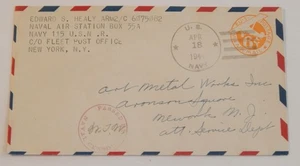 EDWARD S. HEALY AMM2/C
NAVAL AIR STATION BOX 35A
NAVY 115 U.S.N.R.
C/O FLEET POST OFFICE
NEW YORK, N.Y.
U.S.
APR
18
NAVY
6
Art Metal Works Inc
Aronson Square
Newark N.J.
Att. Service Dept